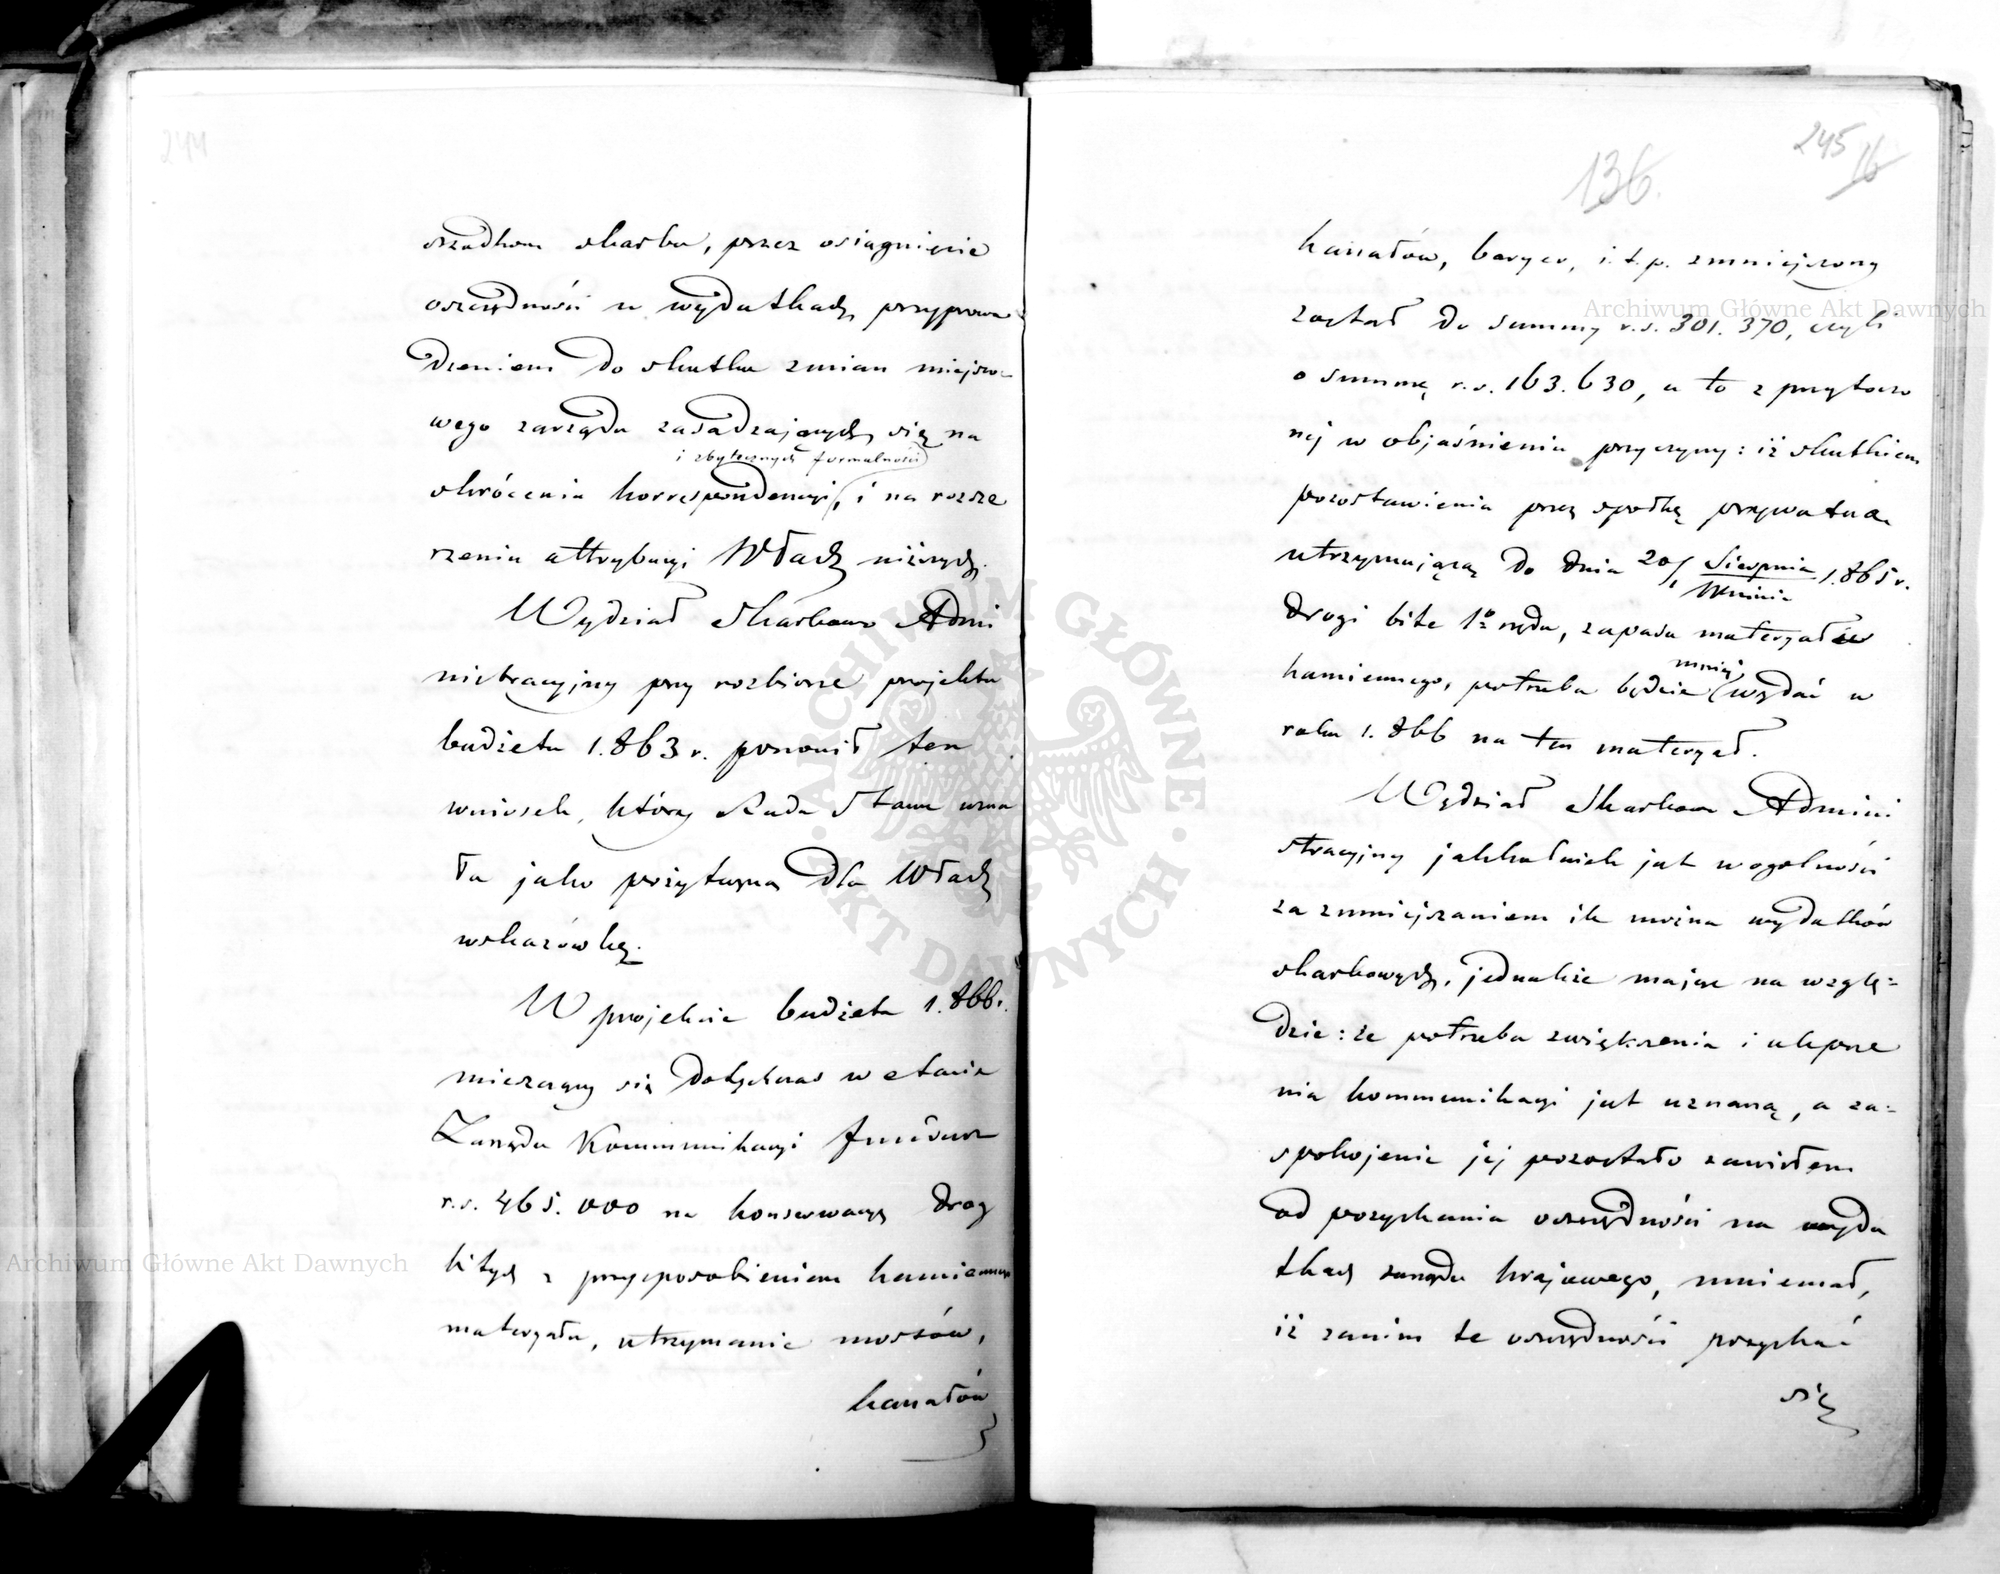 244
rządkom skarbu, przez osiągnięcie
oszczędności w wydatkach, przyprowa
dzeniem do skutku zmian miejsco-
wego zarządu zasadzających się na
i zbytecznych formalności
skróceniu korrespondencyi, i na rozsze
rzeniu attrybucyi Władz niższych.
Wydział Skarbowo Admi
nistracyjny przy rozbiorze projektu
budżetu 1.863 r. ponowił ten
wniosek, który Rada Stanu uzna
ła jako pożyteczną dla Władz
wskazówkę.
W projekcie budżetu 1.866 r.
mieszczący się dotychczas w etacie
Zarządu Kommunikacyi fundusz
r.s. 465.000 na konserwacyą dróg
bitych z przysposobieniem kamiennego
materyału, utrzymanie mostów,
kanałów
245
16
136.
kanałów, baryer, i.t.p. zmniejszony
został do summy r.s. 301.370, czyli
o summę r.s. 163.630, a to z przytoczo
nej w objaśnieniu przyczyny: iż skutkiem
pozostawienia przez spółkę prywatną
utrzymującą do dnia 20/1 Sierpnia/Września 1.865 r.
drogi bite 1o rzędu, zapasu materyału
mniej
kamiennego, potrzeba będzie wydać w
roku 1.866 na ten materyał.
Wydział Skarbowo Admini
stracyjny jakkolwiek jest w ogólności
za zmniejszaniem ile można wydatków
skarbowych, jednakże mając na wzglę=
dzie: że potrzeba zwiększenia i ulepsze
nia kommunikacyi jest uznaną, a za=
spokojenie jej pozostało zawisłem
od pozyskania oszczędności na wyda
tkach zarządu krajowego, mniemał,
iż zanim te oszczędności pozyskać
się
Archiwum Główne Akt Dawnych
Archiwum Główne Akt Dawnych
ARCHIWUM GŁÓWNE · AKT DAWNYCH ·